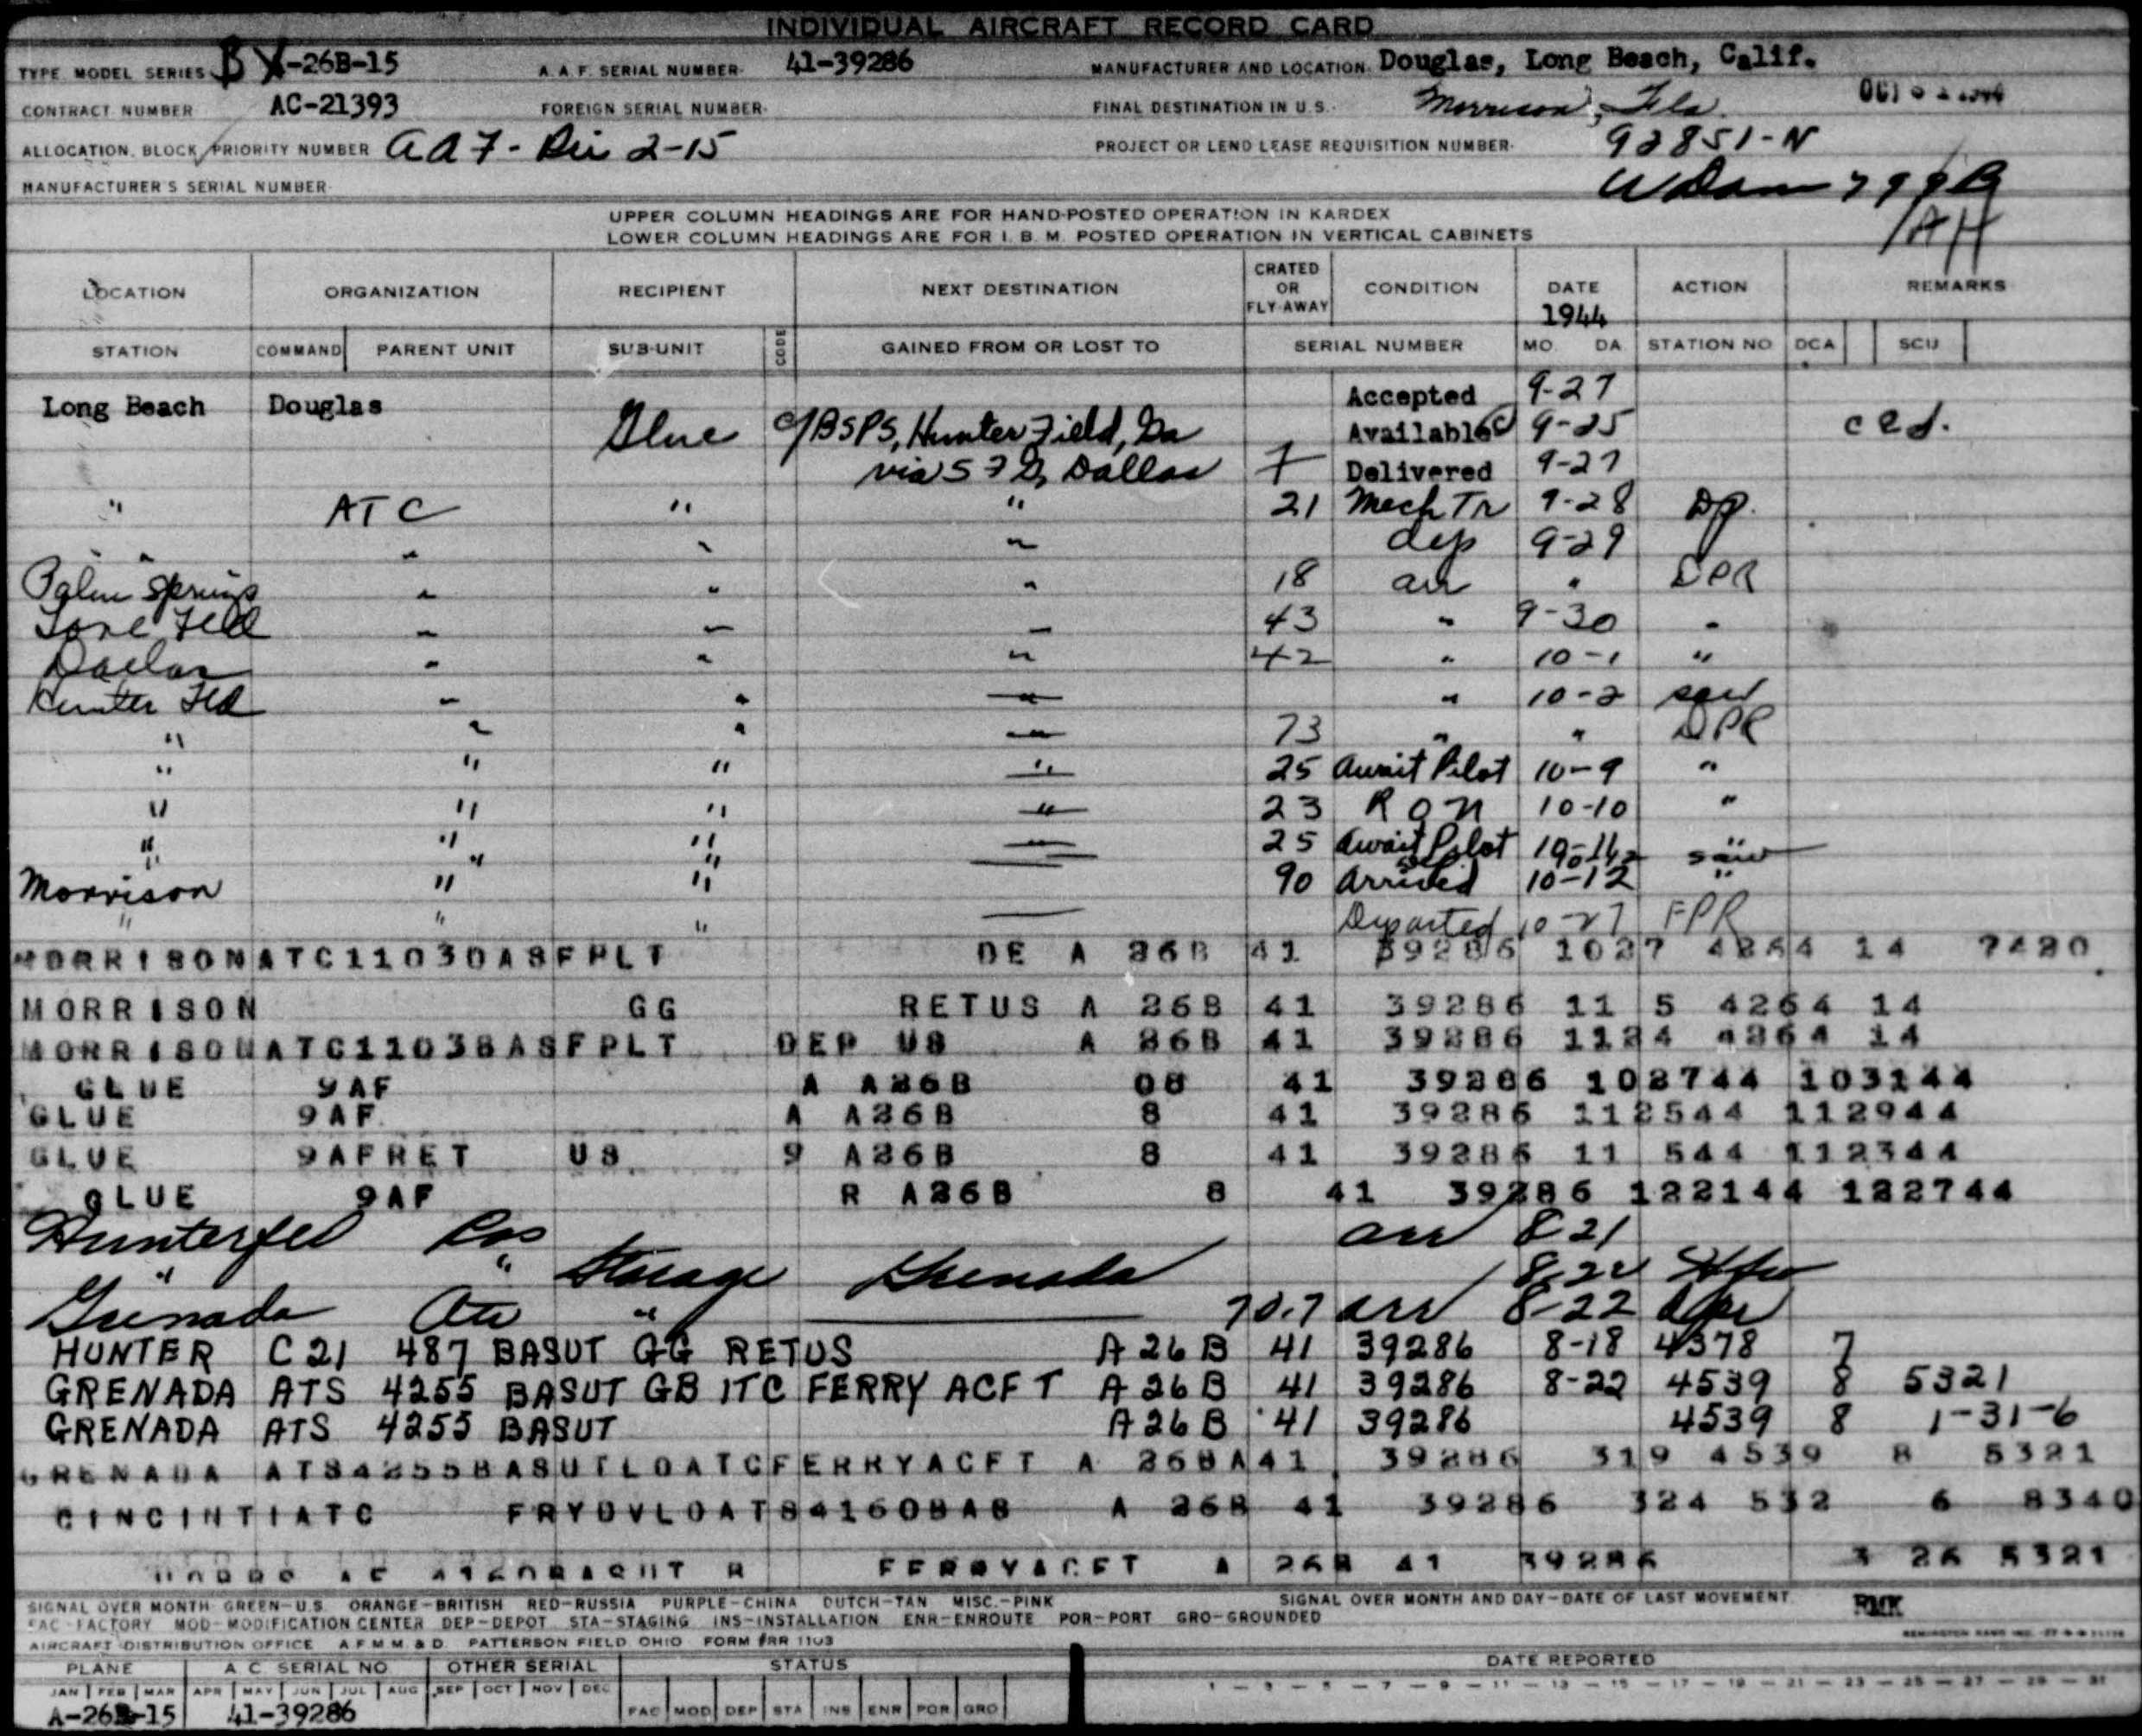 INDIVIDUAL AIRCRAFT RECORD CARD
TYPE MODEL SERIES B X-26B-15 A.A.F. SERIAL NUMBER 41-39286 MANUFACTURER AND LOCATION Douglas, Long Beach, Calif.
CONTRACT NUMBER AC-21393 FOREIGN SERIAL NUMBER FINAL DESTINATION IN U.S. Morrison, Fla.
ALLOCATION, BLOCK, PRIORITY NUMBER 2-15 PROJECT OR LEND LEASE REQUISITION NUMBER 92851-N
MANUFACTURER'S SERIAL NUMBER
UPPER COLUMN HEADINGS ARE FOR HAND-POSTED OPERATION IN KARDEX
LOWER COLUMN HEADINGS ARE FOR I.B.M. POSTED OPERATION IN VERTICAL CABINETS
LOCATION ORGANIZATION RECIPIENT NEXT DESTINATION CRATED OR FLY-AWAY CONDITION DATE 1944 ACTION REMARKS
STATION COMMAND PARENT UNIT SUB-UNIT CODE GAINED FROM OR LOST TO SERIAL NUMBER MO. DA STATION NO DCA SCU
Long Beach Douglas Accepted 9-27
Glue BSPS, Hunter Field, Ga Available 9-25 ced.
via Dallas 7 Delivered 9-27
" ATC " " 21 Mech Tr 9-28 Dp.
" " " " " dep 9-29
Palm Springs " " " 18 arr " DPR
Love Feld " " " 43 " 9-30 "
Dallas " " " 42 " 10-1 "
Hunter Fld " " " " 10-2
" " " " 73 " " DPR
" " " " 25 Await Pilot 10-9 "
" " " " 23 RON 10-10 "
" " " " 25 Await Pilot
Morrison " " 90 Arrived 10-12 "
" " " Departed 10-27 FPR
MORRISONATC11030ASFPLT DE A 26B 41 39286 1027 4264 14 7420
MORRISON GG RETUS A 26B 41 39286 11 5 4264 14
MORRISONATC11038ASFPLT DEP US A 26B 41 39286 1124 4264 14
GLUE 9AF A A26B 08 41 39286 102744 103144
GLUE 9AF A A26B 8 41 39286 112544 112944
GLUE 9AFRET US 9 A26B 8 41 39286 11 544 112344
GLUE 9AF R A26B 8 41 39286 122144 122744
Hunterfel arr 8 21
" " Storage Grenada 8-22
Grenada " 70.7 arr 8-22
HUNTER C21 487 BASUT GG RETUS A26B 41 39286 8-18 4378 7
GRENADA ATS 4255 BASUT GB ITC FERRY ACFT A26B 41 39286 8-22 4539 8 5321
GRENADA ATS 4255 BASUT A26B 41 39286 4539 8 1-31-6
GRENADA ATS4255BASUTLOATCFERRYACFT A 26BA41 39286 319 4539 8 5321
CINCINTIATC FRYDVLOATS4160BAB A 26B 41 39286 324 532 6 8340
FERRYACFT A 26B 41 39286 3 26 5321
SIGNAL OVER MONTH GREEN-U.S. ORANGE-BRITISH RED-RUSSIA PURPLE-CHINA DUTCH-TAN MISC.-PINK SIGNAL OVER MONTH AND DAY-DATE OF LAST MOVEMENT
FAC-FACTORY MOD-MODIFICATION CENTER DEP-DEPOT STA-STAGING INS-INSTALLATION ENR-ENROUTE POR-PORT GRO-GROUNDED RMK
AIRCRAFT DISTRIBUTION OFFICE A.F.M.M. & D. PATTERSON FIELD OHIO FORM #RR 1103
PLANE A C SERIAL NO OTHER SERIAL STATUS DATE REPORTED
JAN FEB MAR APR MAY JUN JUL AUG SEP OCT NOV DEC 1 - 3 - 5 - 7 - 9 - 11 - 13 - 15 - 17 - 19 - 21 - 23 - 25 - 27 - 29 - 31
A-26B-15 41-39286 FAC MOD DEP STA INS ENR POR GRO